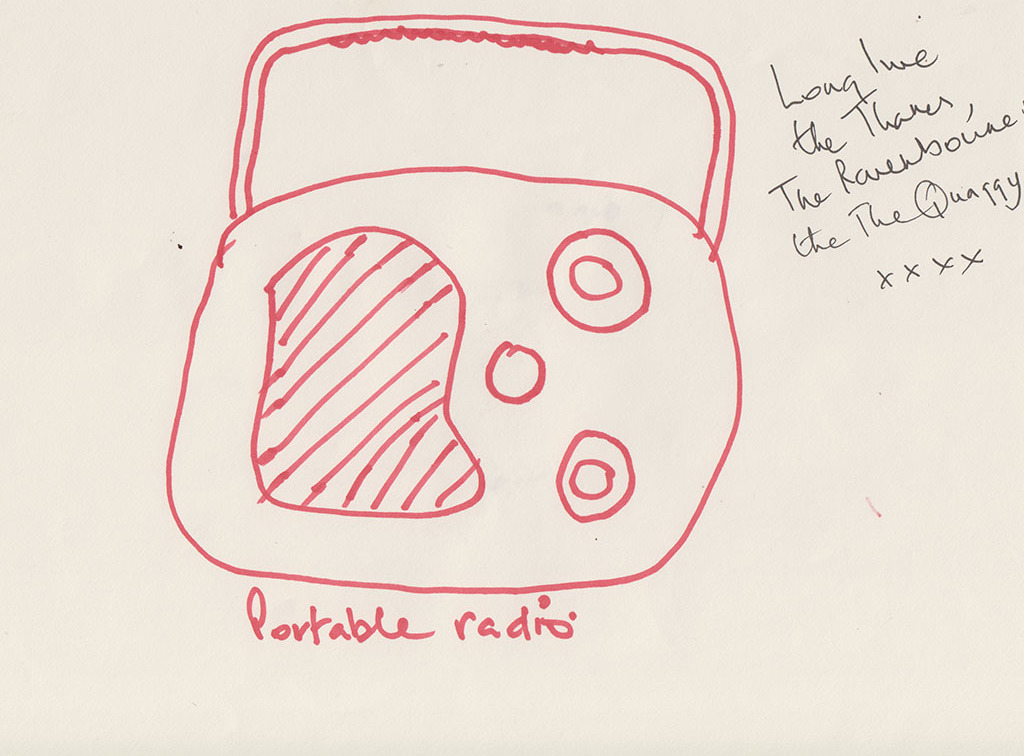 Portable radio
Long live
the Thames,
The Ravensbourne,
the The Quaggy
xxxx